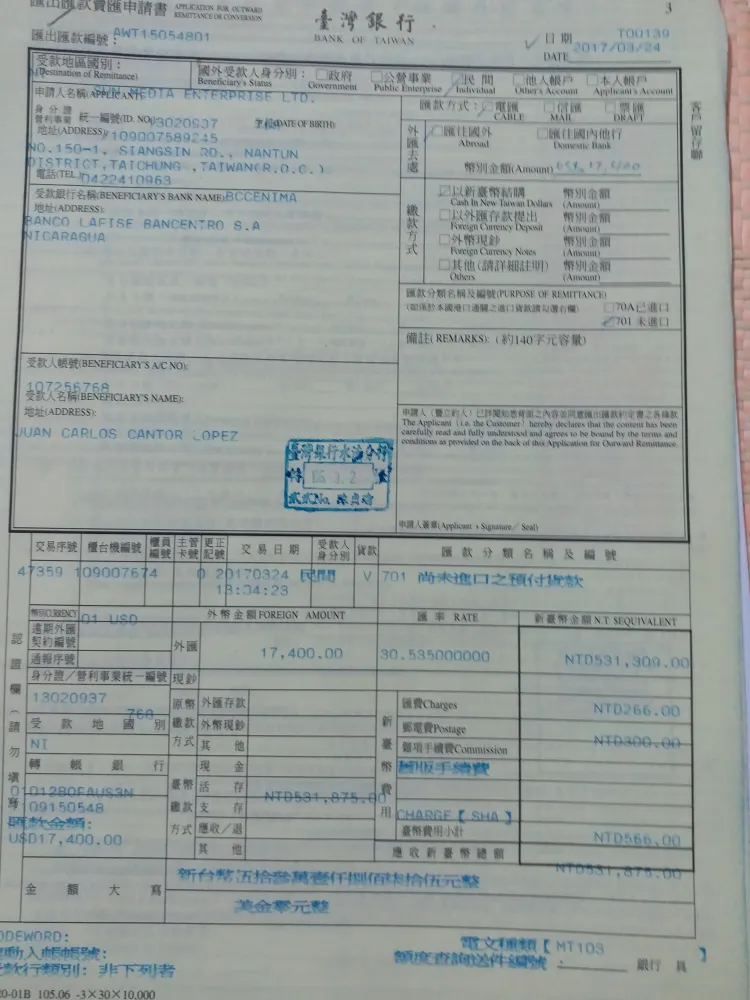 匯出匯款賣匯申請書 APPLICATION FOR OUTWARD REMITTANCE OR CONVERSION
臺灣銀行
BANK OF TAIWAN
3
匯出匯款編號: AWT15054801
日期 TOU139
DATE 2017/03/24
受款地區國別: NI
(Destination of Remittance)
國外受款人身分別: Beneficiary's Status
□政府 Government
□公營事業 Public Enterprise
民間 Individual
□他人帳戶 Other's Account
□本人帳戶 Applicant's Account
申請人名稱(APPLICANT) SUN MEDIA ENTERPRISE LTD.
身分證
營利事業 統一編號(ID. NO) 13020937 (DATE OF BIRTH)
地址(ADDRESS) 109007589245
NO.150-1, SIANGSIN RD., NANTUN
DISTRICT,TAICHUNG ,TAIWAN(R.O.C.)
電話(TEL) 0422410963
匯款方式: □電匯 CABLE □信匯 MAIL □票匯 DRAFT
外匯去處
匯往國外 Abroad
□匯往國內他行 Domestic Bank
幣別金額(Amount)
客戶留存聯
受款銀行名稱(BENEFICIARY'S BANK NAME) BCCENIMA
地址(ADDRESS):
BANCO LAFISE BANCENTRO S.A
NICARAGUA
繳款方式
以新臺幣結購 幣別金額
Cash In New Taiwan Dollars (Amount)
□以外匯存款提出 幣別金額
Foreign Currency Deposit (Amount)
□外幣現鈔 幣別金額
Foreign Currency Notes (Amount)
□其他(請詳細註明) 幣別金額
Others (Amount)
匯款分類名稱及編號(PURPOSE OF REMITTANCE)
(如係於本國港口通關之進口貨款請勾選右欄)
□70A已進口
701 未進口
備註(REMARKS): (約140字元容量)
受款人帳號(BENEFICIARY'S A/C NO):
107256768
受款人名稱(BENEFICIARY'S NAME):
地址(ADDRESS):
JUAN CARLOS CANTOR LOPEZ
申請人(暨立約人)已詳閱知悉背面之內容並同意匯出匯款約定書之各條款
The Applicant (i.e. the Customer) hereby declares that the content has been
carefully read and fully understood and agrees to be bound by the terms and
conditions as provided on the back of this Application for Outward Remittance.
申請人簽章(Applicant's Signature/ Seal)
交易序號 櫃台機編號 櫃員編號 主管卡號 更正記號 交易日期 受款人身分別 貨款 匯款分類名稱及編號
47359 109007674 0 20170324 民間 V 701 尚未進口之預付貨款
13:04:23
幣別CURRENCY 01 USD
外幣金額FOREIGN AMOUNT
匯率 RATE
新臺幣金額 N.T $EQUIVALENT
遠期外匯契約編號
通報序號
外匯 17,400.00 30.535000000 NTD531,309.00
身分證/營利事業統一編號 現鈔
13020937
768
受款地國別
NI
轉帳銀行
01012BOFAUS3N
09150548
匯款金額:
USD17,400.00
認證欄(請勿填寫
原幣繳款方式
外匯存款
外幣現鈔
其他
臺幣繳款方式
現金
活存 NTD531,875.00
支存
應收/退
其他
新臺幣費用
匯費Charges NTD266.00
郵電費Postage NTD300.00
雜項手續費Commission
國外手續費
CHARGE【 SHA 】
臺幣費用小計 NTD566.00
應收新臺幣總額 NTD531,875.00
金額大寫
新台幣伍拾參萬壹仟捌佰柒拾伍元整
美金零元整
ODEWORD:
動入帳帳號:
款行類別: 非下列者
電文種類【 MT103 】
額度查詢送件編號:
銀行 員
20-01B 105.06 -3×30×10,000